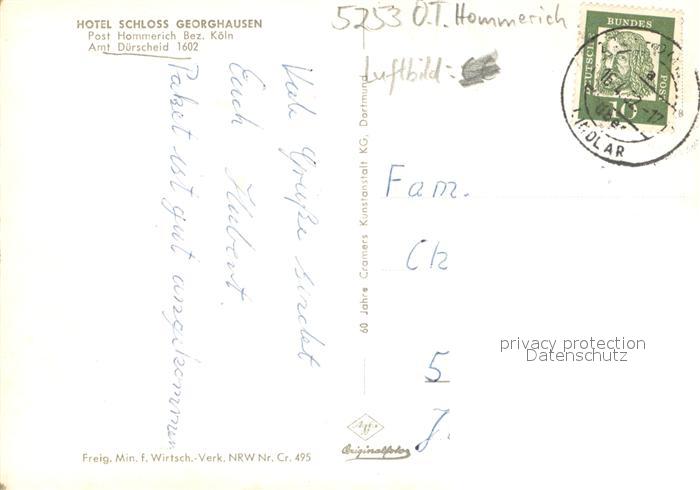 HOTEL SCHLOSS GEORGHAUSEN
Post Hommerich Bez. Köln
Amt Dürscheid 1602
5253 O.T. Hommerich
Luftbild:
Viele Grüße sendet
Euch Hubert.
Paket ist gut angekommen
60 Jahre Cramers Kunstanstalt KG, Dortmund
DEUTSCHE
BUNDES
POST
10
LINDLAR
Fam.
Ch
5
J.
privacy protection
Datenschutz
Agfa
Originalfoto
Freig. Min. f. Wirtsch.-Verk. NRW Nr. Cr. 495